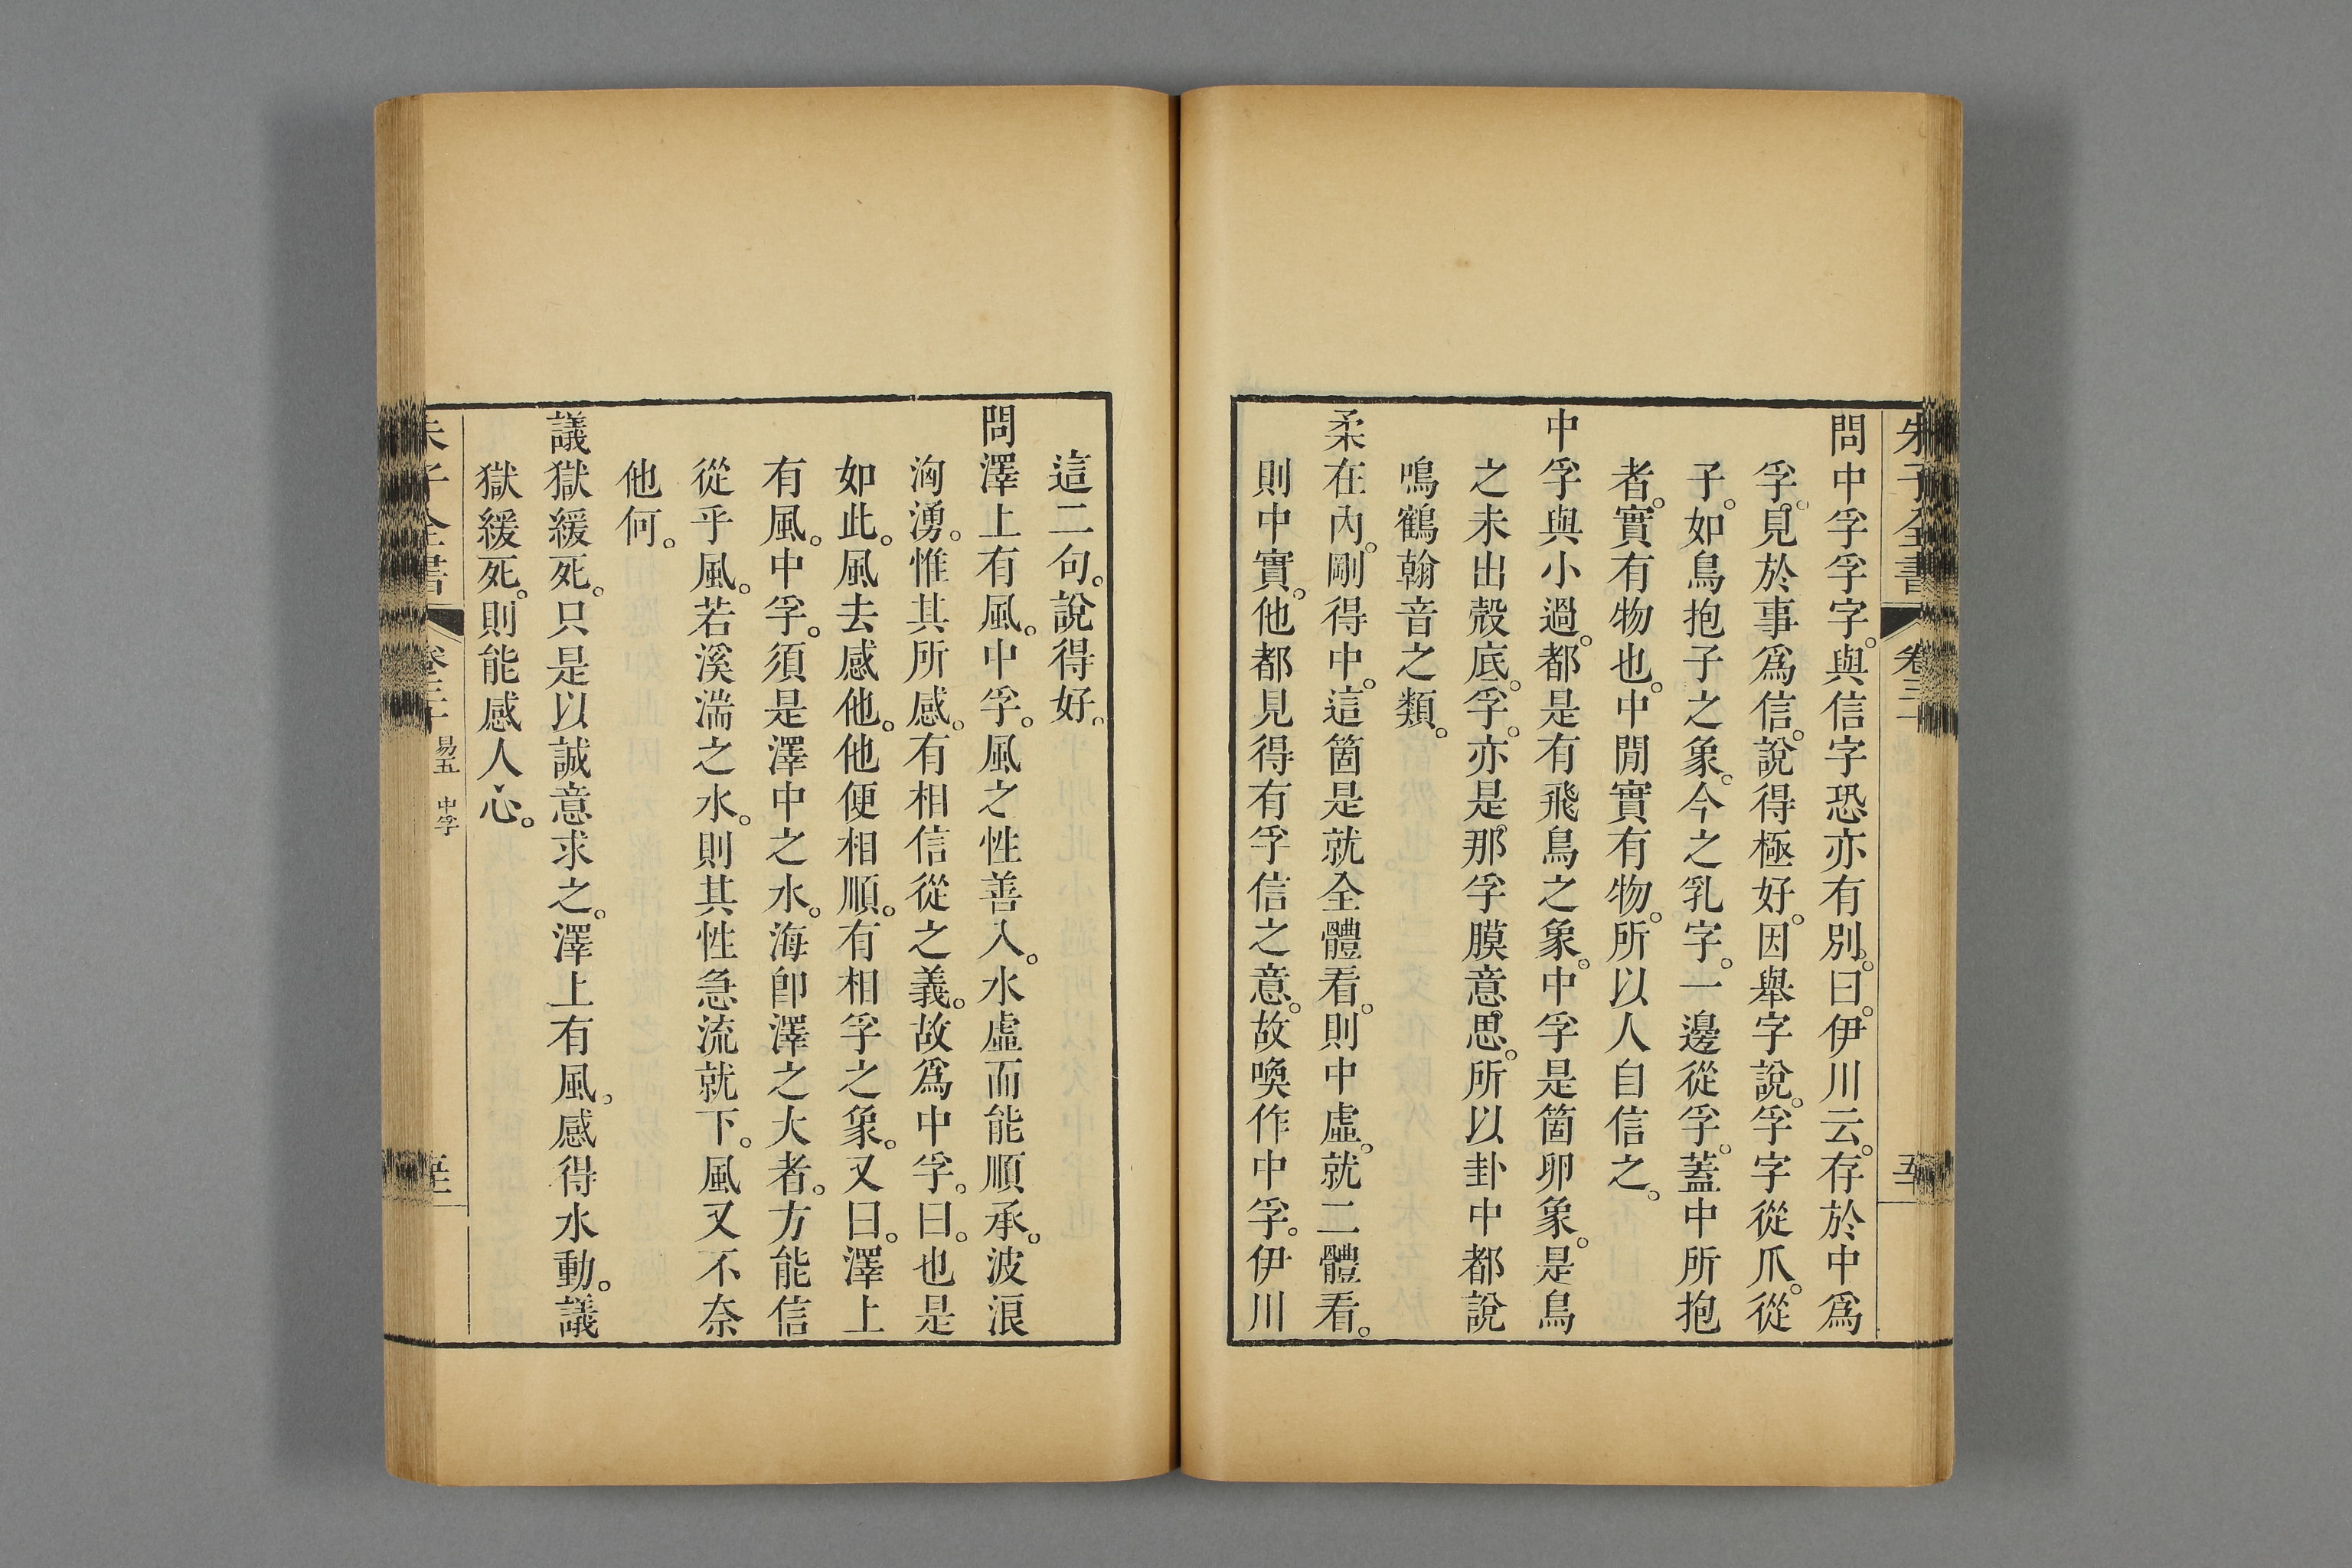 朱子全書 卷三
問中孚孚字。與信字恐亦有別。曰。伊川云。存於中爲
孚。見於事爲信。說得極好。因舉字說。孚字從爪。從
子。如鳥抱子之象。今之乳字。一邊從孚。蓋中所抱
者。實有物也。中閒實有物。所以人自信之。
中孚與小過。都是有飛鳥之象。中孚是箇卵象。是鳥
之未出殼底。孚。亦是那孚膜意思。所以卦中都說
鳴鶴翰音之類。
柔在內。剛得中。這箇是就全體看。則中虛。就二體看。
則中實。他都見得有孚信之意。故喚作中孚。伊川
這二句。說得好。
問澤上有風。中孚。風之性善入。水虛而能順承。波浪
洶湧。惟其所感。有相信從之義。故爲中孚。曰。也是
如此。風去感他。他便相順。有相孚之象。又曰。澤上
有風。中孚。須是澤中之水。海卽澤之大者。方能信
從乎風。若溪湍之水。則其性急流就下。風又不奈
他何。
議獄緩死。只是以誠意求之。澤上有風。感得水動。議
獄緩死。則能感人心。
朱子全書 卷三十 易五 中孚